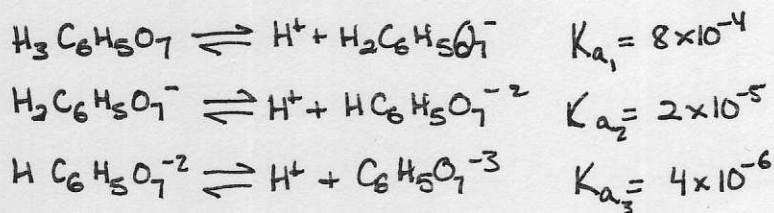 H₃C₆H₅O₇ ⇌ H⁺ + H₂C₆H₅O₇⁻ Kₐ₁ = 8×10⁻⁴
H₂C₆H₅O₇⁻ ⇌ H⁺ + HC₆H₅O₇⁻² Kₐ₂ = 2×10⁻⁵
HC₆H₅O₇⁻² ⇌ H⁺ + C₆H₅O₇⁻³ Kₐ₃ = 4×10⁻⁶